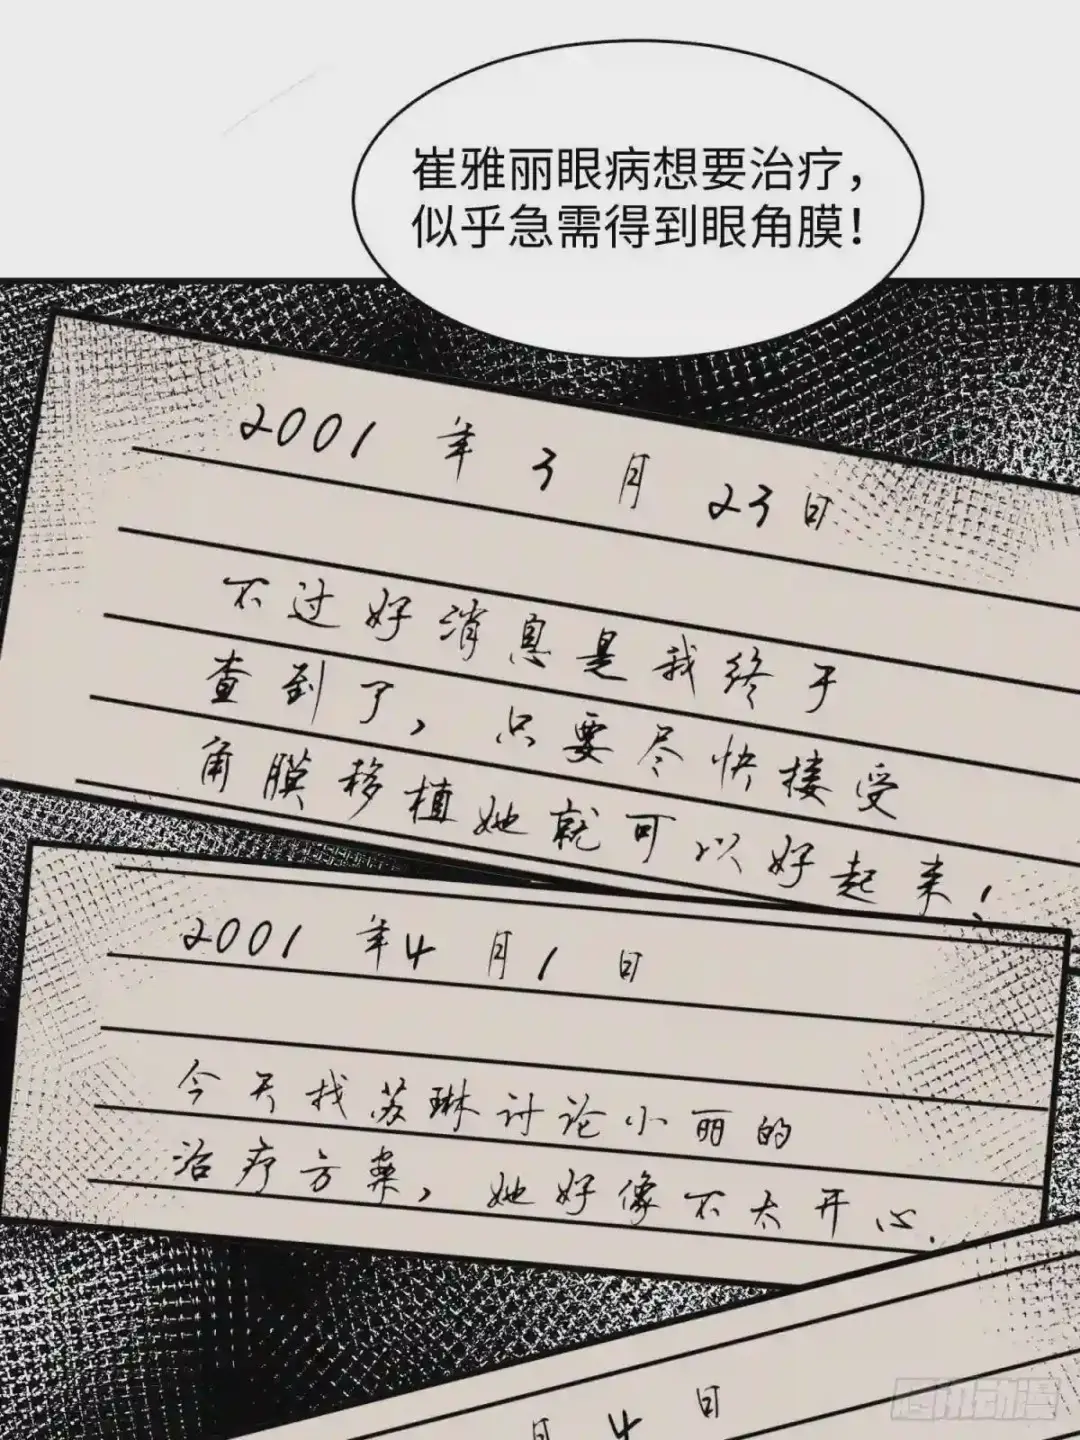 崔雅丽眼病想要治疗，
似乎急需得到眼角膜！
2001 年 3 月 23日
不过好消息是我终于
查到了，只要尽快接受
角膜移植她就可以好起来！
2001 年4 月1 日
今天找苏琳讨论小丽的
治疗方案，她好像不太开心.
月 4 日
腾讯动漫